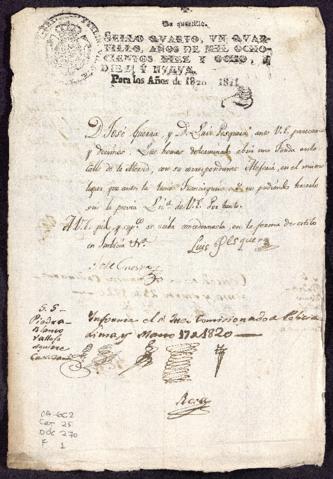 Un quartillo.
SELLO QUARTO, UN QUAR-
TILLO, AÑOS DE MIL OCHO-
CIENTOS DIEZ Y OCHO, Y
DIEZ Y NUEVE.
Para los Años de 1820 1821
D. José Guerra y D. Luis Pesquera ante V.E. parecemos
y decimos: Que hemos determinado abrir una Fonda en la
Calle de la Merced, con su correspondiente
lugar que antes la tenía Francisquin y no pudiendo hacerlo
sin la previa Lic.ª de V.E. Por tanto.
A V.E. pido y sup.co se sirva concedernosla, en la forma de estilo
en Justicia
Luis Pesquera
José Guerra
S. S.
Piedra
Blanco
Vallejo
Aguirre
Informe el S. Juez Comisionado de Policia
Lima y Marzo 17 de 1820
Rosa
CA-GC2
Caj 25
Doc 270
F 1